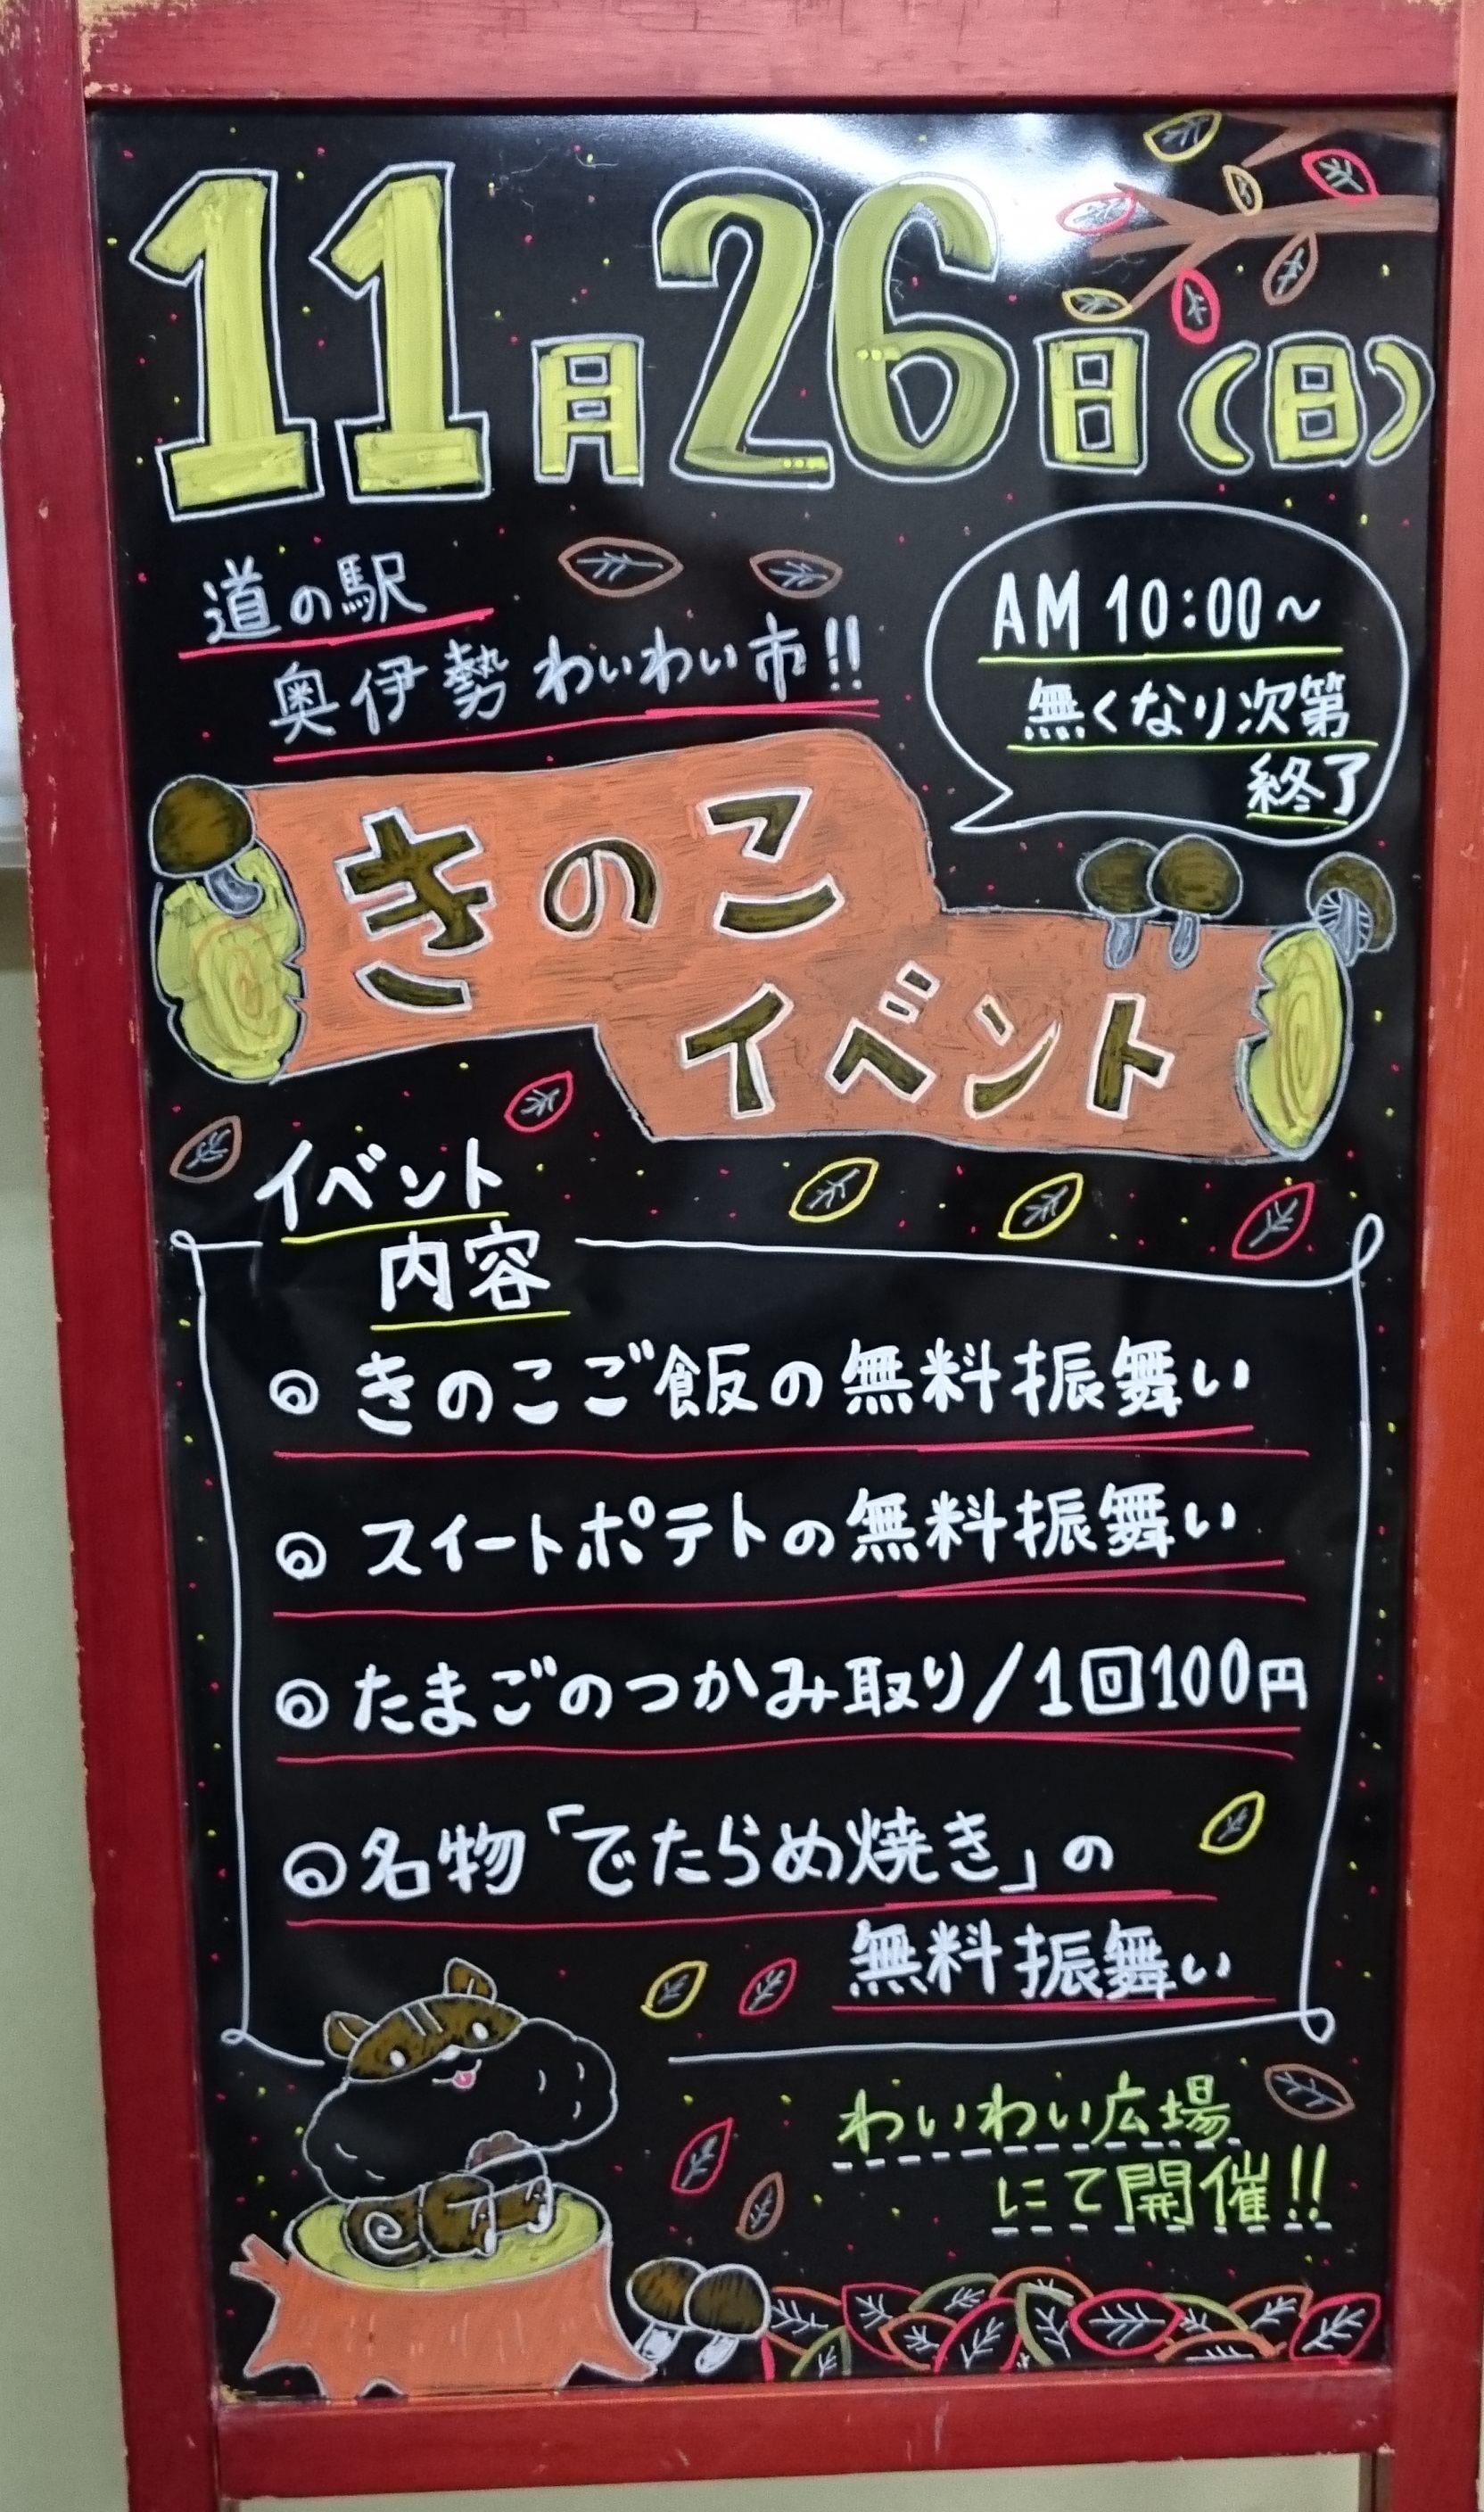 11月26日(日)
道の駅
奥伊勢わいわい市!!
AM 10:00～
無くなり次第
終了
きのこ
イベント
イベント
内容
◎ きのこご飯の無料振舞い
◎ スイートポテトの無料振舞い
◎ たまごのつかみ取り/1回100円
◎ 名物「でたらめ焼き」の
無料振舞い
わいわい広場
にて開催!!